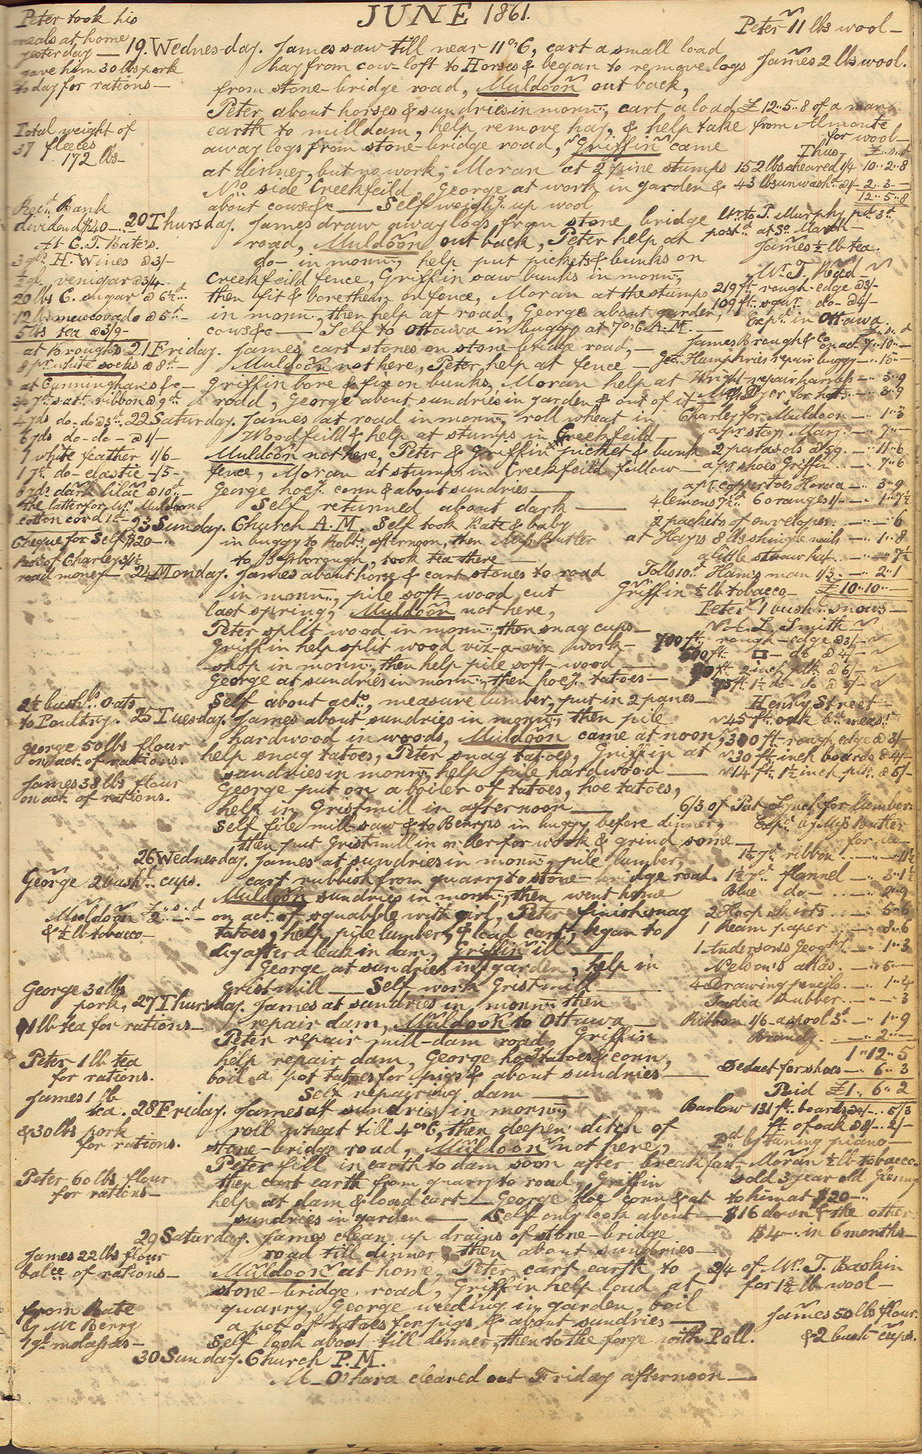 JUNE 1861.
Peter took his
meals at home
yesterday —
gave him 30 lbs pork
today for rations —
Total weight of
37 fleeces
172 lbs —
19. Wednesday. James saw till near 11 on 6, cart a small load
hay from cow-loft to Horses & began to remove logs
from stone-bridge road, Muldoon out back,
Peter about horses & sundries in morng, cart a load
earth to milldam, help remove hay, & help take
away logs from stone-bridge road, Griffin came
at dinner, but no work, Moran at 2 pine stumps
No. side Creekfeild, George at work in garden &
about cows &c — Self weighg. up wool
Peter 11 lbs wool —
James 2 lbs wool.
£12..5..8 of a man
from Almonte
for wool —
Thus £..s..d
152 lbs sheared 1/4 10..2..8
43 lbs unwashd. @1/- 2..3..—
12..5..8
Bank
dividend $40 —
At C. T. Bate's.
H. Wines @3/-
vinegar @3/4
20 lbs C. sugar @6½
12 lbs muscovado @5
5 lbs tea @3/9 —
20 Thursday. James draw away logs from stone bridge
road, Muldoon out back, Peter help at
do- in morng, help put pickets & bunks on
Creekfeild fence, Griffin saw bunks in morng,
then fit & bore them on fence, Moran at the stumps
in morng, then help at road, George about garden,
cows &c — Self to Ottawa in buggy at 7 on 6 A.M. —
to T. Murphy,
post at So. March —
James ½ lb tea.
Mr. T. Read —
219 ft rough-edge @3/-
109 ft squr. do- @4/-
Exp. in Ottawa.
at Brough's
white socks @8
at Cunningham's &c —
satn. ribbon @9
21 Friday. James cart stones on stone-bridge road, —
Muldoon not here, Peter, help at fence —
Griffin bore & fix on bunks, Moran help at
road, George about sundries in garden & out of it —
James Brough & Co
Geo. Humphries repair buggy —..15..—
Wright repair harness —..3..9
for hats —..8..9
4 yds do- do @3 
6 yds do-do- @1/-
1 white feather 1/6
1 yd. do- elastic -/5-
6 yds dark lilac @10
the latter for Mrs. Muldoon
cotton cord 1
22 Saturday. James at road in morng, roll wheat in
Woodfeild & help at stumps in Creekfeild
Muldoon not here, Peter & Griffin picket & bunk
fence, Moran at stumps in Creekfeild fallow —
George hoeg. corn & about sundries —
Self returned about dark —
Charley for Muldoon —..1..3
2 parasols @5/9 —..11..6
a pr. shoes Griffin —..7..6
a pr. coppertoes Horace —..3..9
4 lemons 7½ 6 oranges 1/- —..1..7½
Cheque for Self $20 —
road money —
23 Sunday. Church A.M. Self took Kate & baby
in buggy to Robt. afternoon, then Miss Butler
to Harborough, took tea there —
2 packets of envelopes —..—..6
at Hays 8 lbs shingle nails —..1..8
a little straw hat —..—..7½
24 Monday. James about horse & cart stones to road
in morng, pile soft wood cut
last spring, Muldoon not here,
Peter split wood in morng, then snag cups —
Griffin help split wood viz-a-viz work-
shop in morng, then help pile soft-wood —
George at sundries in morng, then hoeg. tatoes —
Self about acts., measure lumber, put in 2 panes —
Tolls 10 Ham's man 1/3 —..2..1
Griffin ½ lb tobacco — £10..10..—
Peter 1 bush. snows —
L. Smith —
700 ft rough-edge @3/-
500 ft □ — do @4/-
ft 2 inch plk @6/-
75 ft 1½ do- do @5/-
2½ bushs. oats
to Poultry.
George 50 lbs flour
on act. of rations.
James 38 lbs flour
on act. of rations.
25 Tuesday. James about sundries in morng, then pile
hardwood in woods, Muldoon came at noon,
help snag tatoes, Peter snag tatoes, Griffin at
sundries in morng, help pile hardwood —
George put on a boiler of tatoes, hoe tatoes,
help in Gristmill in afternoon —
Self file mill saw & to Berry's in buggy before dinner,
then put Gristmill in order for work & grind some —
Henry Street —
45 ft oak bd. meast.
300 ft rough edge @3/-
30 ft inch boards @4/-
14 ft 1½ inch plk. @5/-
6/3 of Pat Lynch for lumber.
Exp. by Miss Butler
for do —
George 2 bushs. cups.
Muldoon £..s..d
2..—..—
& ½ lb tobacco —
26 Wednesday. James at sundries in morng, pile lumber,
cart rubbish from quarry to stone-bridge road
Muldoon sundries in morng, then went home
on act. of squabble with girl, Peter finish snag
tatoes, help pile lumber & load cart, began to
dig after a leak in dam, Griffin ill —
George at sundries in garden, help in
Gristmill — Self work Gristmill —
ribbon —..—..11½
1½ yd. flannel —..3..1½
Blue — do —..2..9
2 Hoop skirts —..5..6
1 Ream paper —..8..6
1 Anderson's Geogy. —..1..3
Nelson's atlas —..5..—
4 Drawing pencls. —..1..4
India Rubber —..—..3
Ribbon 1/6 — a spool 3 —..1..9
Brandy —..2..—
1..12..5
Deduct for shoes —..6..3
Paid £1..6..2
George 30 lbs
pork.
1 lb tea for rations —
Peter 1 lb tea
for rations.
27 Thursday. James at sundries in morng, then
repair dam, Muldoon to Ottawa —
Peter repair mill-dam road, Griffin
help repair dam, George hoe tatoes & corn,
boil a pot tatoes for pigs & about sundries —
Self repairing dam —
James 1 lb
tea.
& 30 lbs pork
for rations.
Peter 60 lbs flour
for rations —
28 Friday. James at sundries in morng,
roll wheat till 4 on 6, then deepen ditch of
stone-bridge road, Muldoon not here,
Peter fill in earth to dam soon after breakfast
then cart earth from quarry to road, Griffin
help at dam & load cart — George hoe corn & at
sundries in garden — Self only look about —
Barlow 131 ft. boards @4/- 5/3
ft. of oak @8/- 2/-
Pd. by tuning piano —
Moran ½ lb tobacco
Sold 3 year old filly
to him at $20 —
$16 down & the other
$4 — in 6 months —
James 22 lbs flour
balce. of rations —
from Kate
by Mc Berry
1 gl. molasses —
29 Saturday. James clean up drains of stone-bridge
road till dinner, then about sundries —
Muldoon at home, Peter, cart earth to
stone-bridge road, Griffin help load at
quarry, George weeding in garden, boil
a pot of tatoes for pigs & about sundries —
Self look about till dinner, then to the forge with Poll.
3/4 of Mr. T. Baskin
for 1½ lb wool —
James 50 lbs flour.
& 2 bush. cups.
30 Sunday. Church P.M.
M- O'Hara cleared out Friday afternoon —